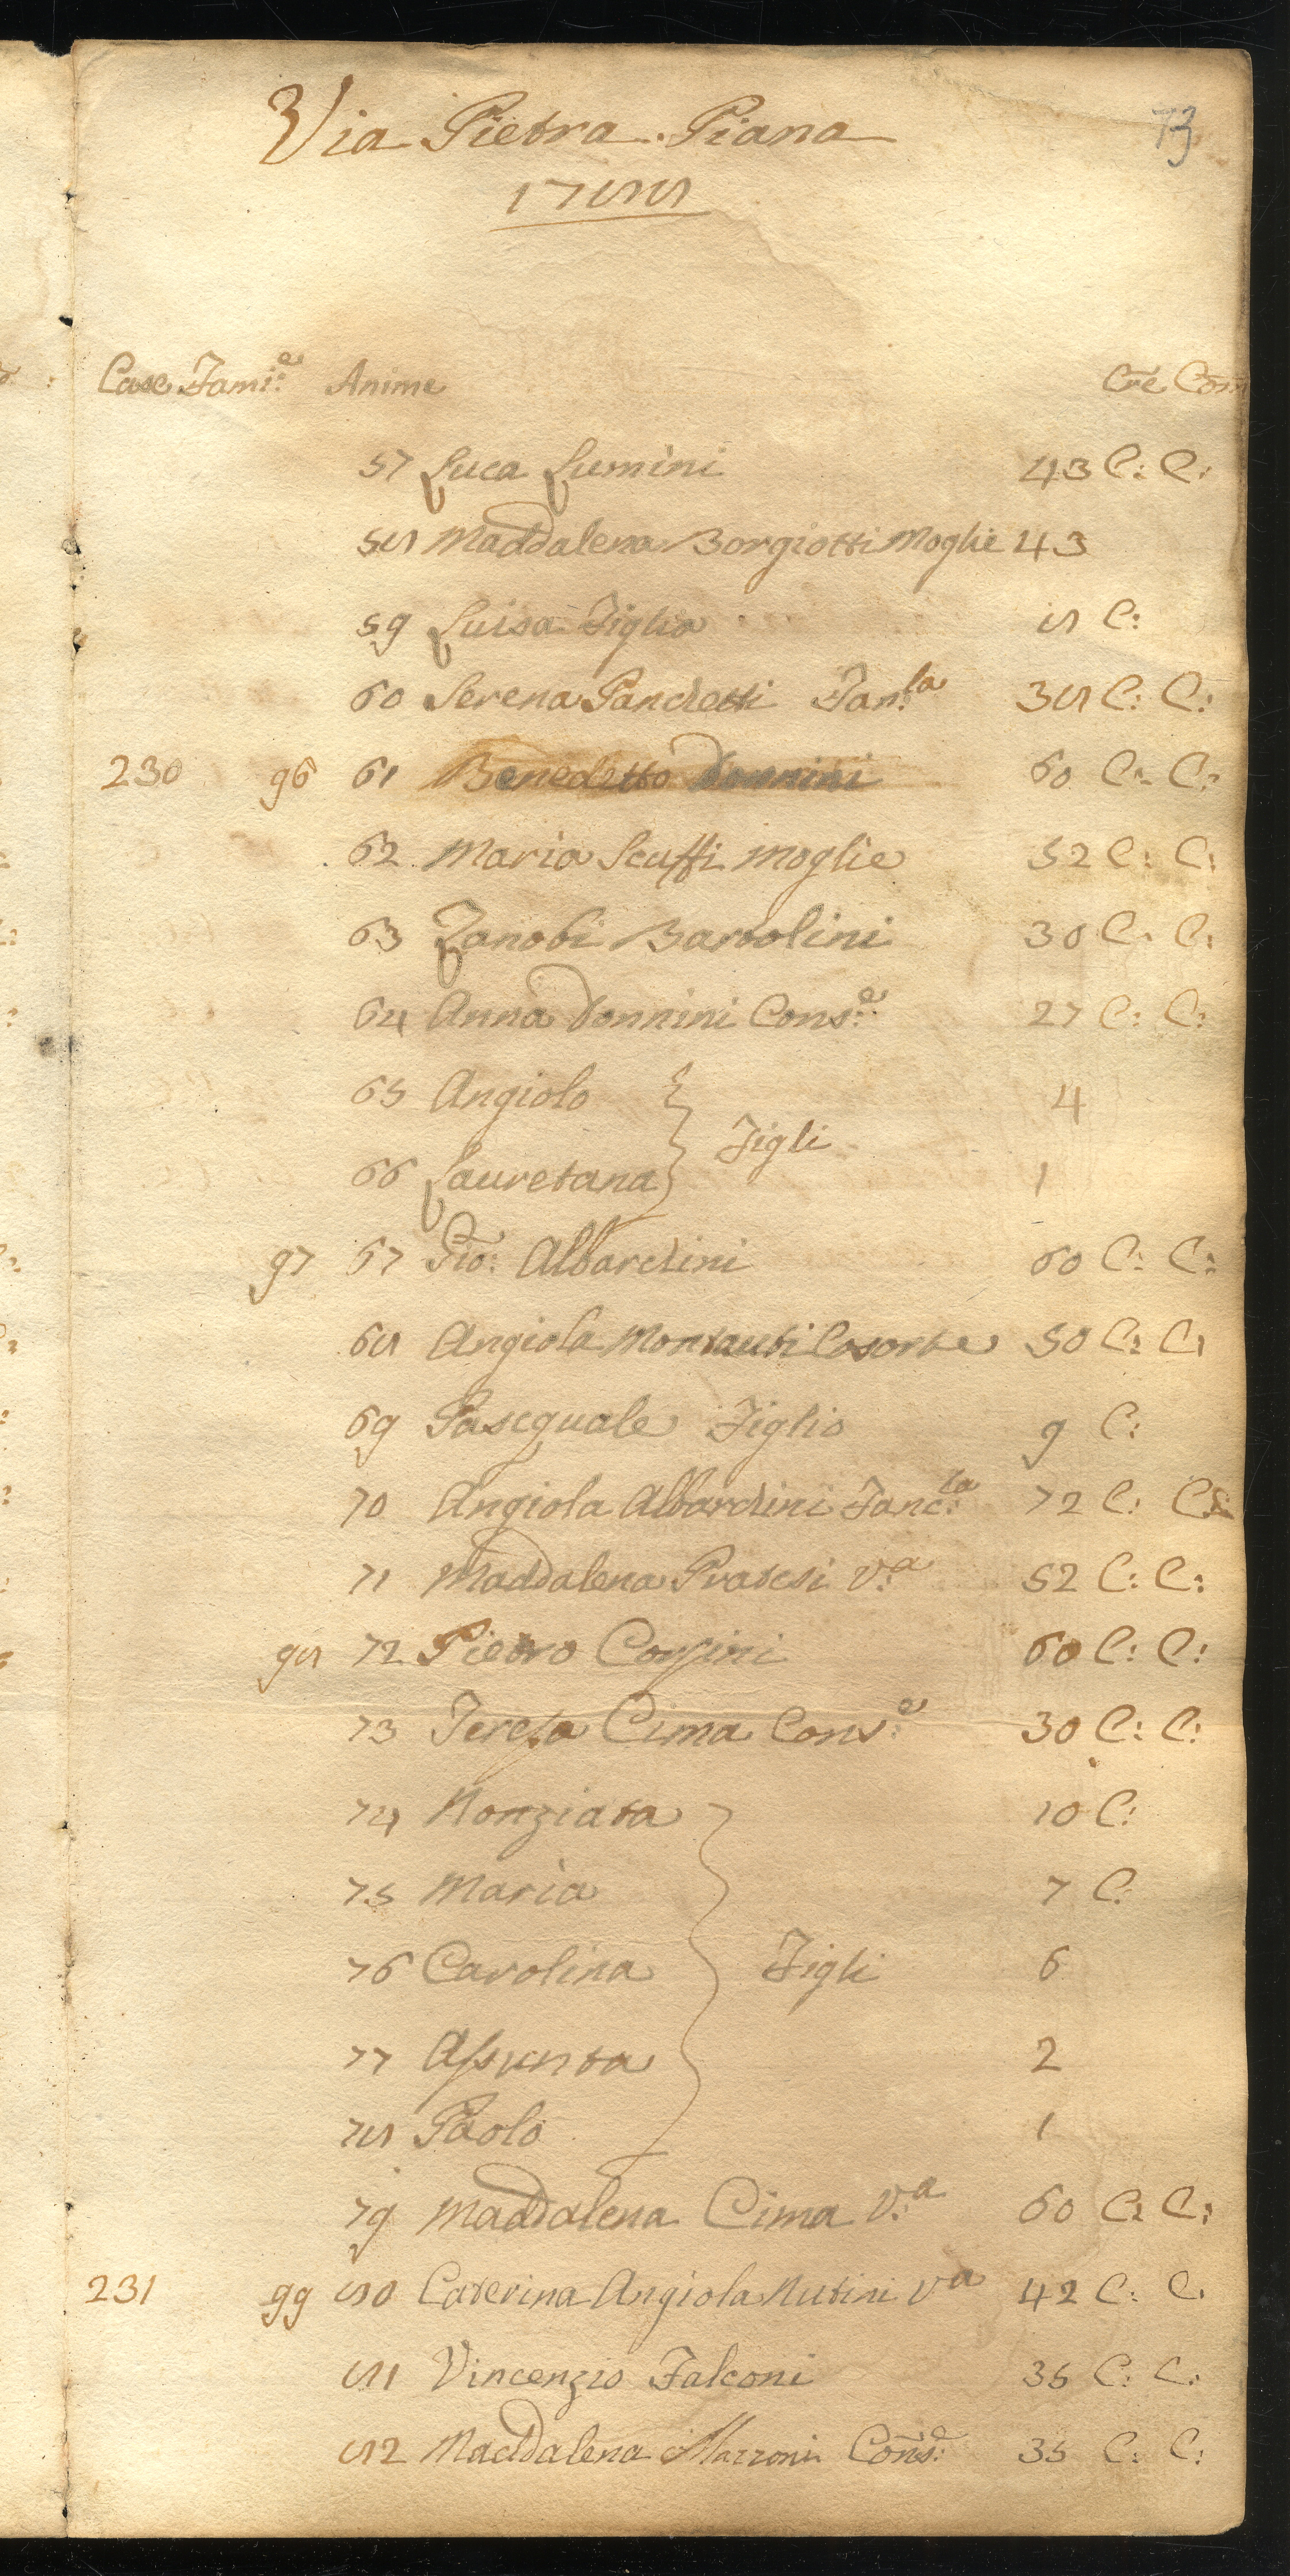 Via Pietra Piana
73
1788
Case Fami:e Anime Cre Com
57 Luca Lumini 43 C: C:
58 Maddalena Borgiotti Moglie 43
59 Luisa Figlia 8 C:
60 Serena Panchetti Fan:la 38 C: C:
230 96 61 Benedetto Donnini 60 C: C:
62 Maria Scuffi Moglie 52 C: C:
63 Zanobi Bartolini 30 C: C:
64 Anna Donnini Cons:e 27 C: C:
65 Angiolo 4
Figli
66 Lauretana 1
97 67 Gio: Albardini 60 C: C:
68 Angiola Montauti Cosorte 50 C: C:
69 Pascquale Figlio 9 C:
70 Angiola Albardini Fanc:la 72 C: C:
71 Maddalena Pratesi V:a 52 C: C:
98 72 Pietro Corsini 60 C: C:
73 Teresa Cima Cons:e 30 C: C:
74 Nonziata 10 C:
75 Maria 7 C:
76 Carolina Figli 6
77 Assunta 2
78 Paolo 1
79 Maddalena Cima V:a 60 C: C:
231 99 80 Caterina Angiola Nutini Va 42 C: C:
81 Vincenzio Falconi 35 C: C:
82 Maddalena Mazzoni Cons:e 35 C: C: